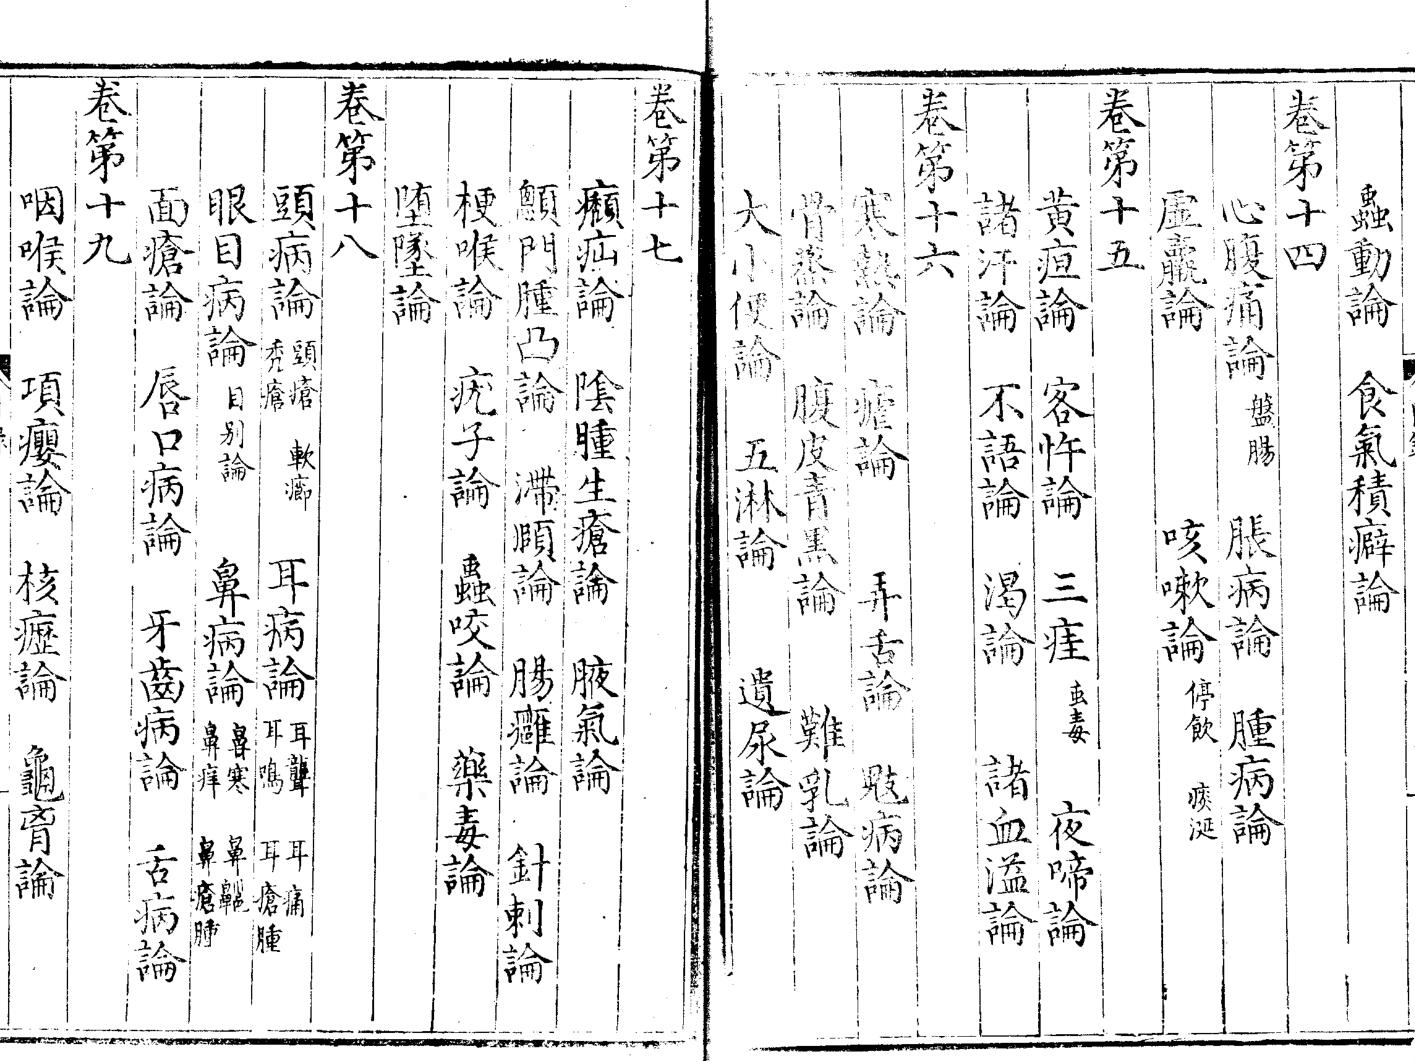 蟲動論　食氣積癖論
卷第十四
心腹痛論　盤腸　脹病論　腫病論
虛羸論　咳嗽論　停飲　痰涎
卷第十五
黃疸論　客忤論　三疰　虫毒　夜啼論
諸汗論　不語論　渴論　諸血溢論
卷第十六
寒熱論　瘧論　弄舌論　鬾病論
骨蒸論　腹皮青黑論　難乳論
大小便論　五淋論　遺尿論
卷第十七
㿗疝論　陰腫生瘡論　腋氣論
顖門腫凸論　滯頤論　腸癰論　針刺論
梗喉論　疣子論　蟲咬論　藥毒論
墮墜論
卷第十八
頭病論　頭瘡　軟癤　禿瘡　耳病論　耳聾　耳痛　耳鳴　耳瘡腫
眼目病論　目別論　鼻病論　鼻寒　鼻齆　鼻痒　鼻瘡腫
面瘡論　唇口病論　牙齒病論　舌病論
卷第十九
咽喉論　項癭論　核癧論　龜胷論